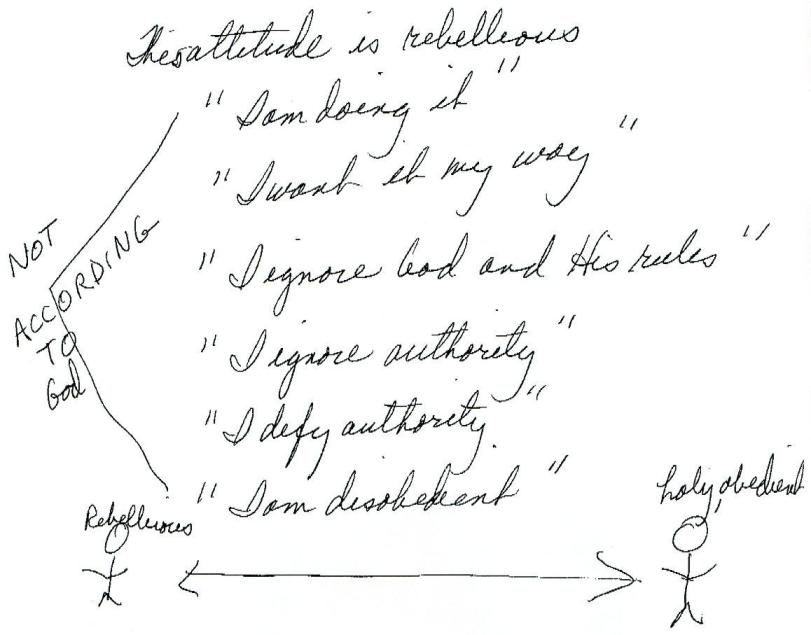 This attitude is rebellious
"I am doing it"
"I want it my way"
"I ignore God and His rules"
"I ignore authority"
"I defy authority"
"I am disobedient"
NOT
ACCORDING
TO
God
Rebellious
holy, obedient